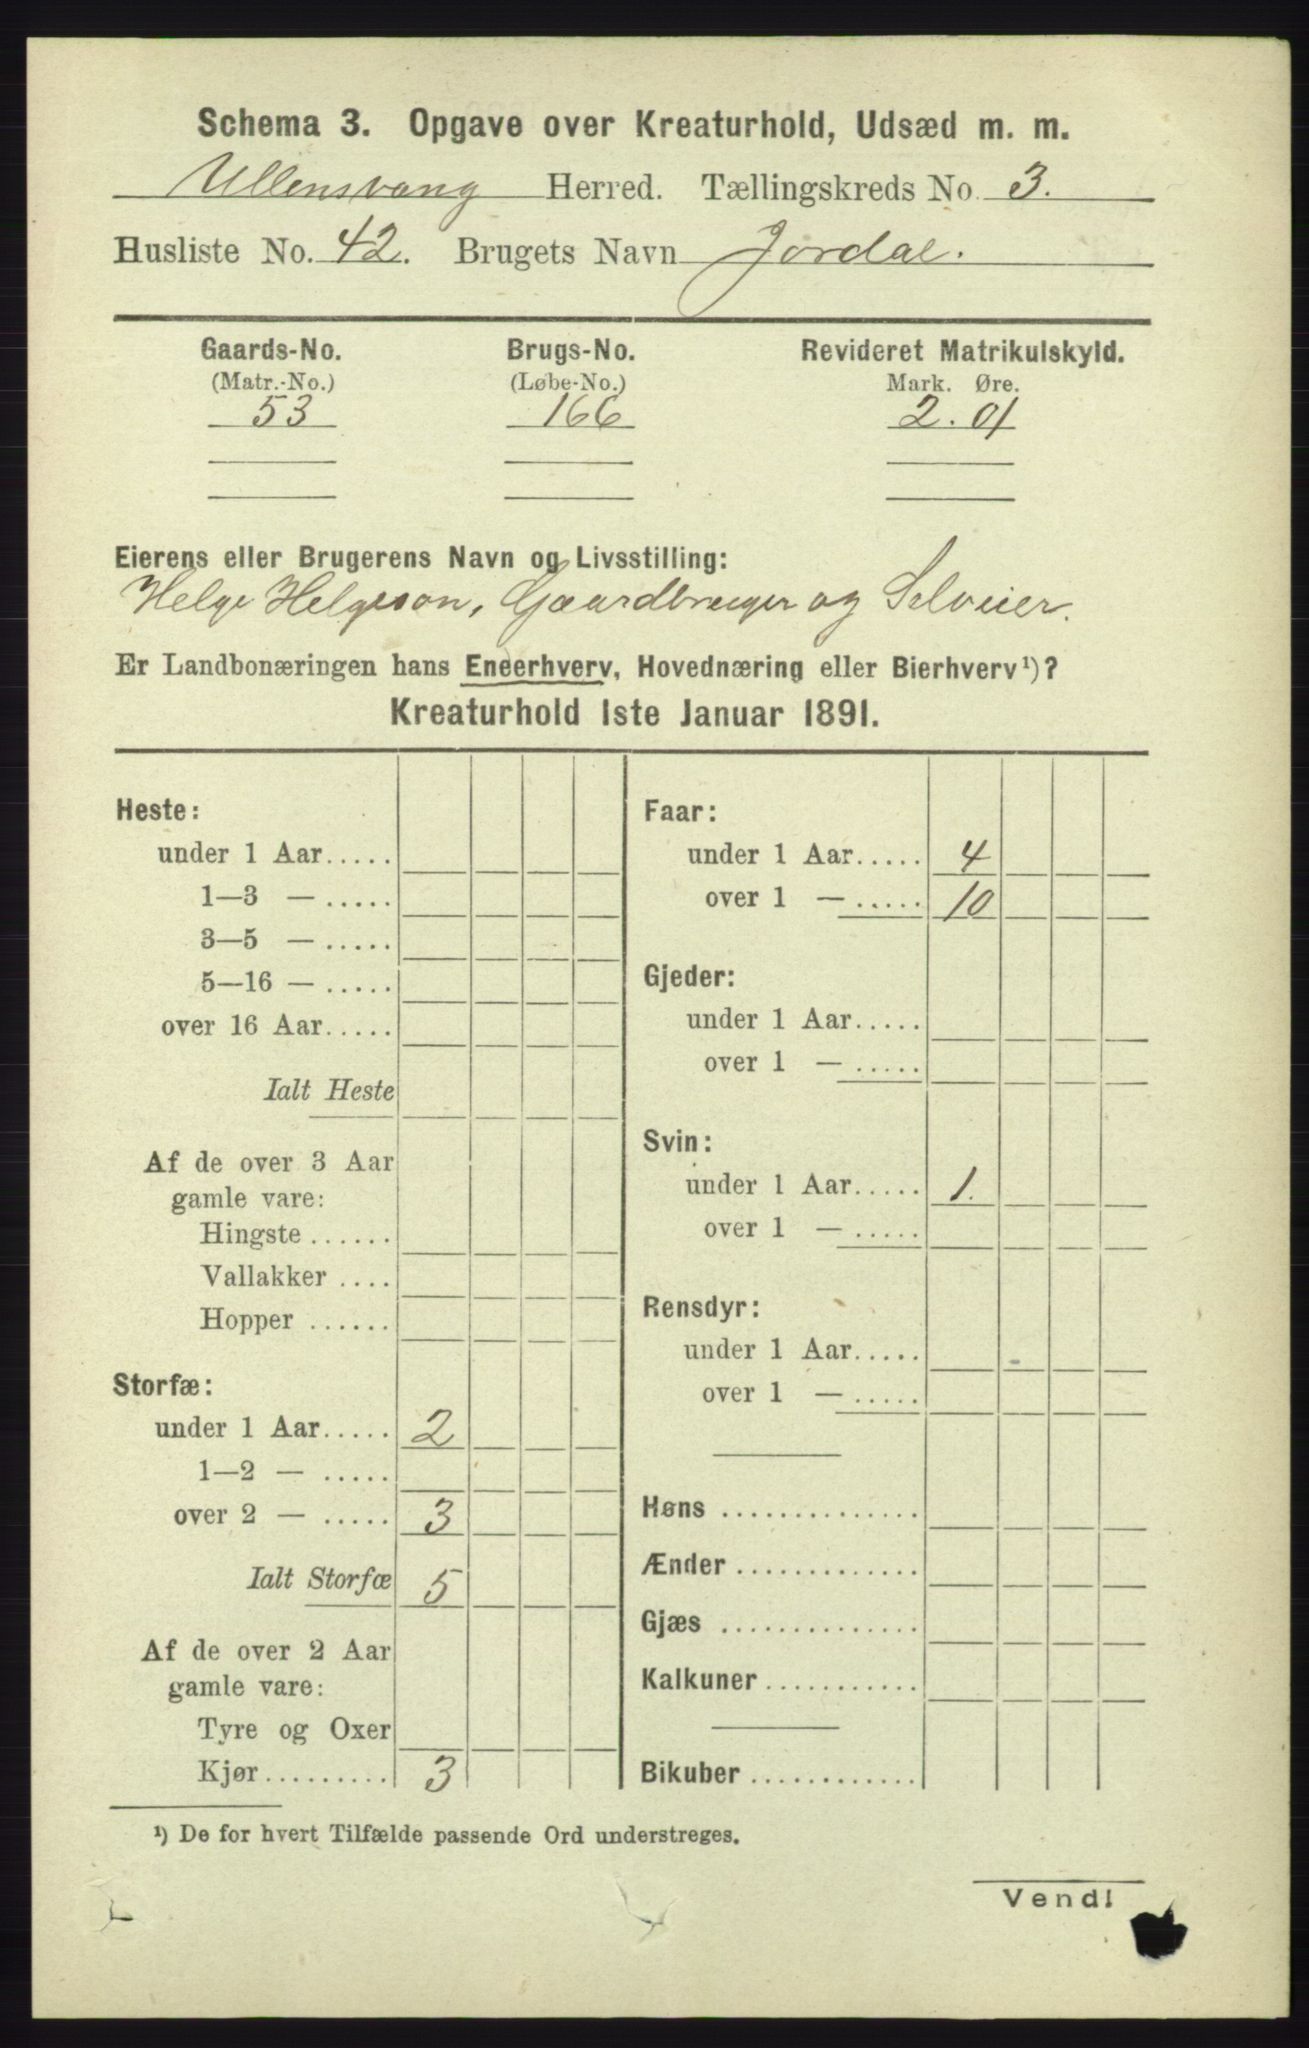 Schema 3. Opgave over Kreaturhold, Udsæd m. m.
Ullensvang Herred. Tællingskreds No. 3.
Husliste No. 42. Brugets Navn Jordal.
Gaards-No. Brugs-No. Revideret Matrikulskyld.
(Matr.-No.) (Løbe-No.) Mark. Øre.
53 166 2.01
Eierens eller Brugerens Navn og Livsstilling:
Helge Helgeson, Gaardbruger og Selveier.
Er Landbonæringen hans Eneerhverv, Hovednæring eller Bierhverv¹)?
Kreaturhold 1ste Januar 1891.
Heste:
under 1 Aar.....
1—3 — .....
3—5 — .....
5—16 — .....
over 16 Aar.....
Ialt Heste
Af de over 3 Aar
gamle vare:
Hingste ......
Vallakker ....
Hopper ......
Storfæ:
under 1 Aar..... 2
1—2 — .....
over 2 — ..... 3
Ialt Storfæ 5
Af de over 2 Aar
gamle vare:
Tyre og Oxer
Kjør.......... 3
Faar:
under 1 Aar..... 4
over 1 — ..... 10
Gjeder:
under 1 Aar.....
over 1 — .....
Svin:
under 1 Aar..... 1.
over 1 — .....
Rensdyr:
under 1 Aar.....
over 1 — .....
Høns ..............
Ænder .............
Gjæs ..............
Kalkuner...........
Bikuber ............
¹) De for hvert Tilfælde passende Ord understreges.
Vend!